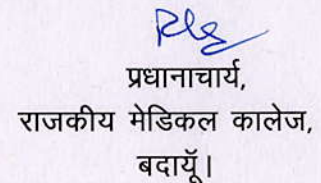 प्रधानाचार्य,
राजकीय मेडिकल कालेज,
बदायूॅ।